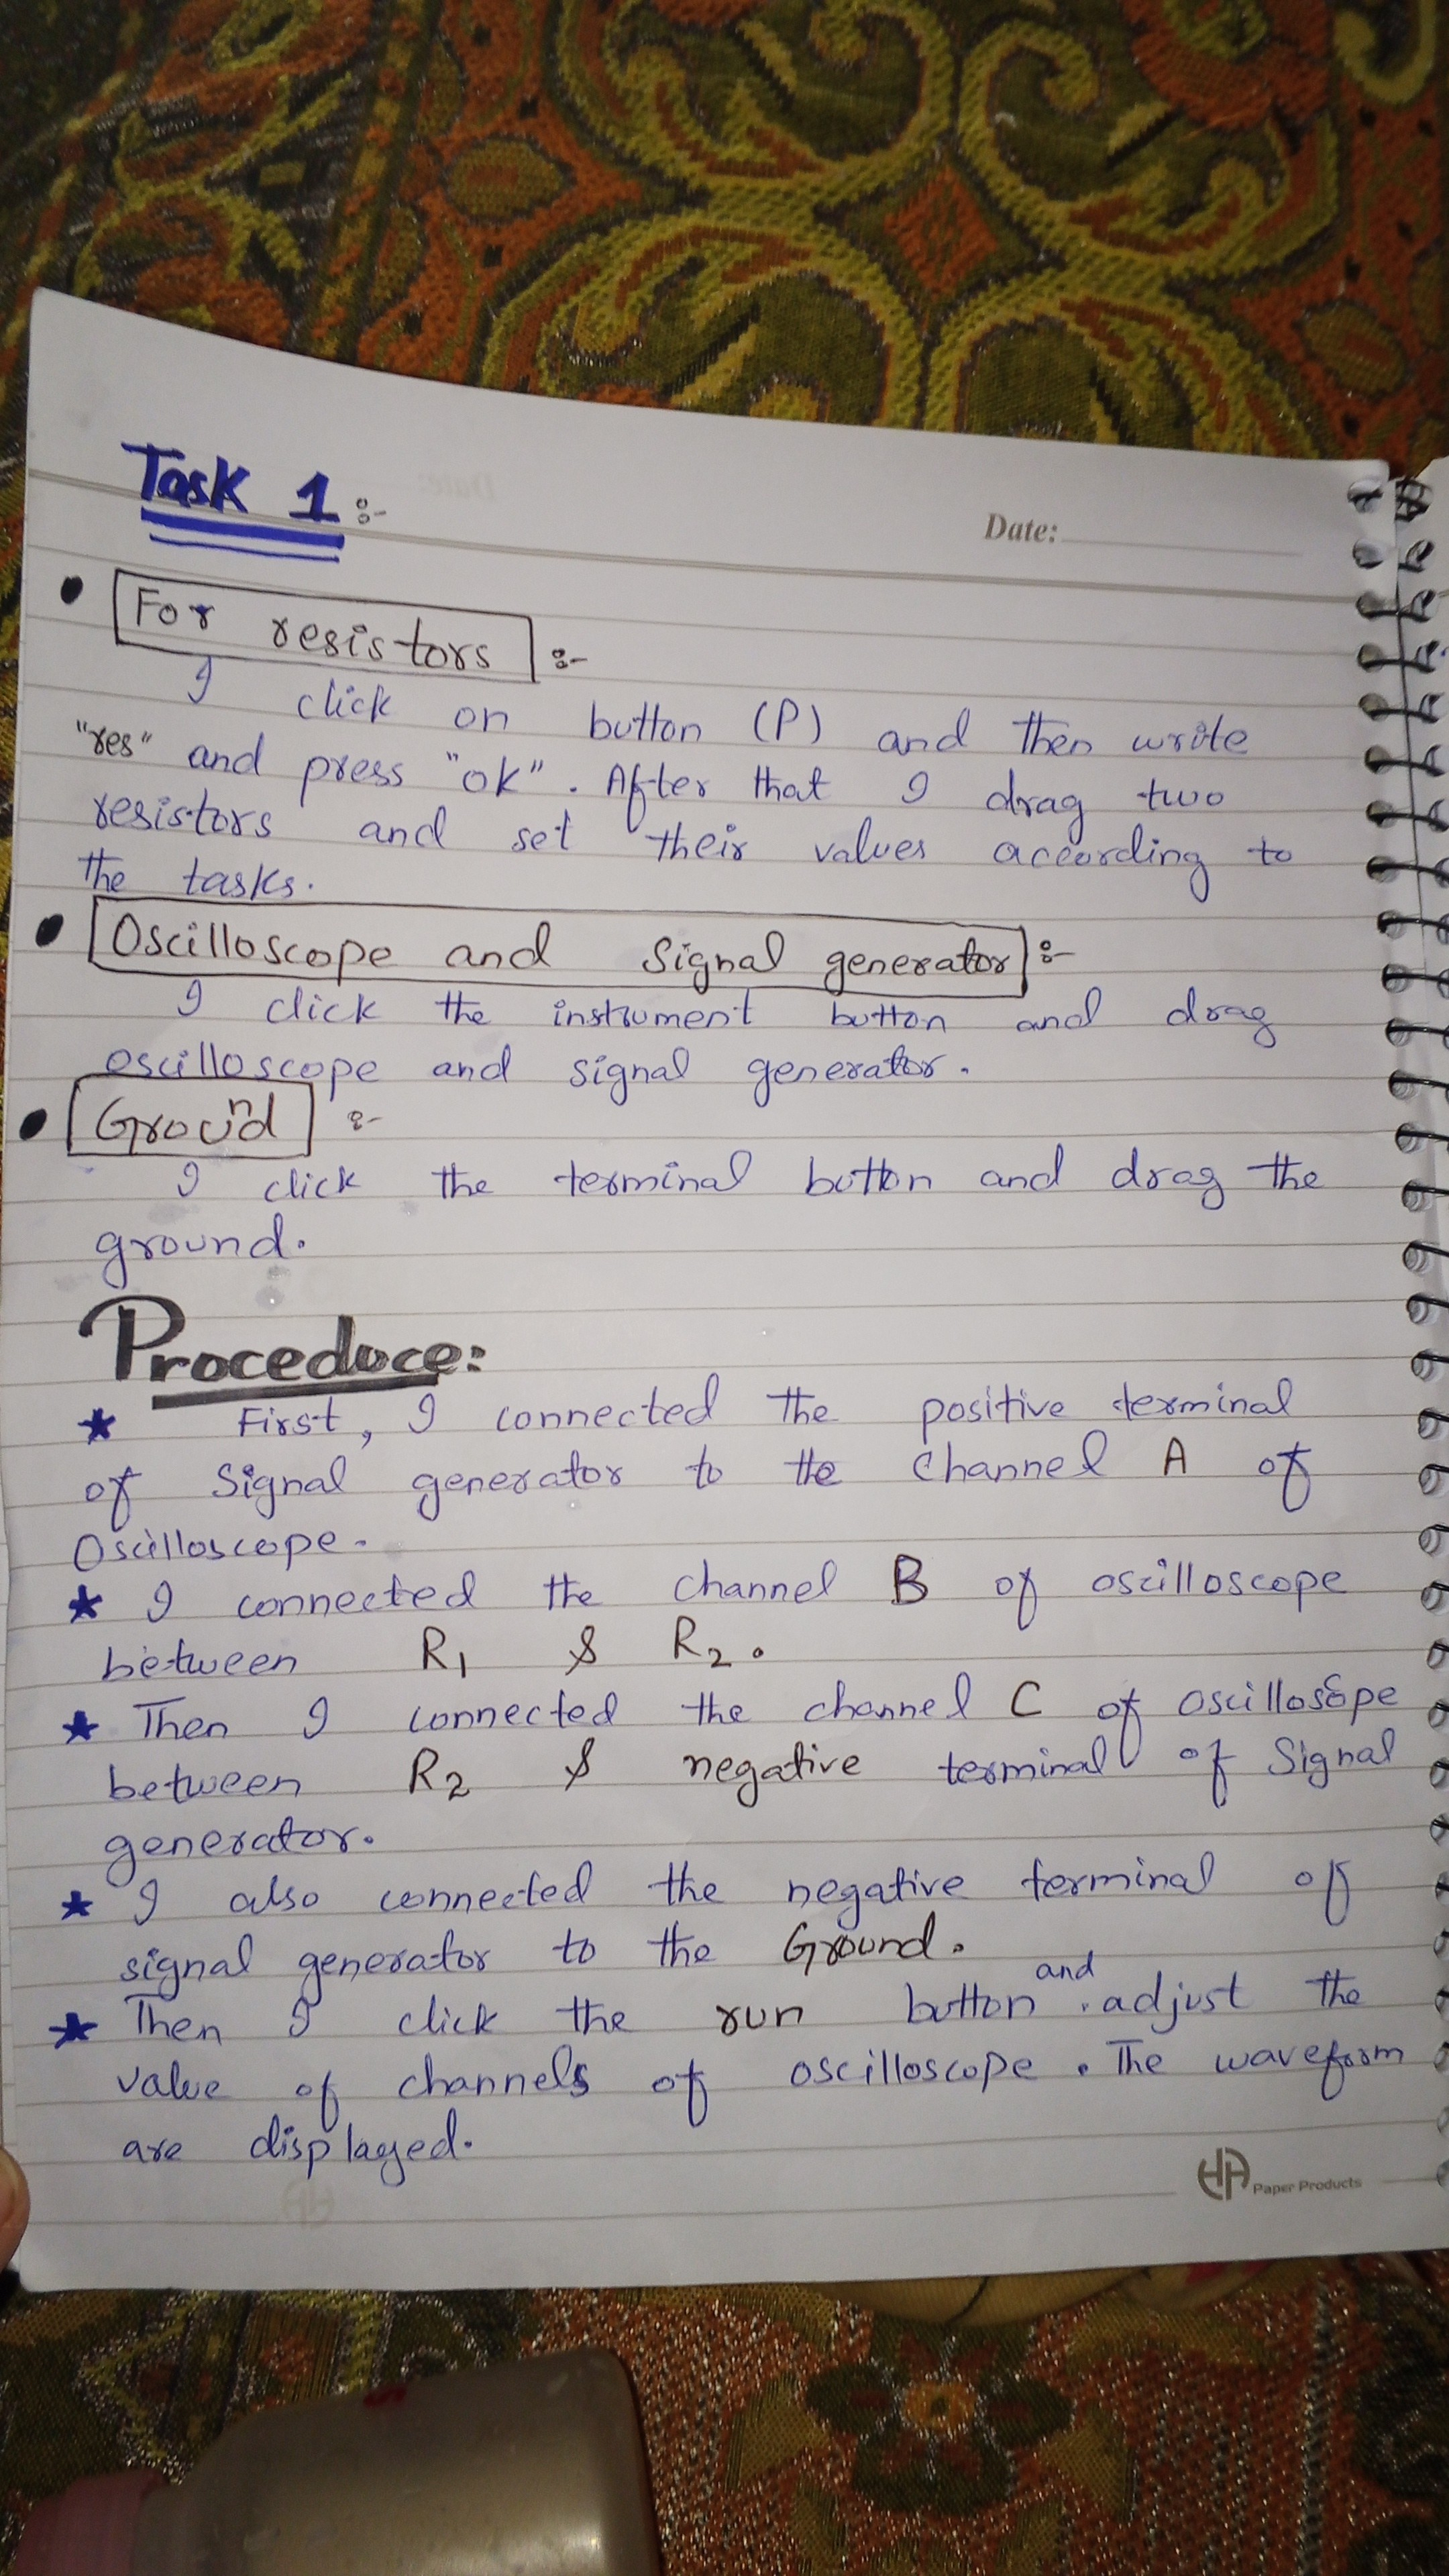 Task 1:-
Date:
• For resistors :-
I click on button (P) and then write
"res" and press "ok". After that I drag two
resistors and set their values according to
the tasks.
• Oscilloscope and Signal generator :-
I click the instrument button and drag
oscilloscope and signal generator.
• Ground :-
I click the terminal button and drag the
ground.
Proceduce:
* First, I connected the positive terminal
of Signal generator to the Channel A of
Oscilloscope.
* I connected the channel B of oscilloscope
between R1 & R2.
* Then I connected the channel C of oscilloscope
between R2 & negative terminal of Signal
generator.
* I also connected the negative terminal of
signal generator to the Ground.
* Then I click the run button and adjust the
value of channels of oscilloscope. The waveform
are displayed.
HA Paper Products